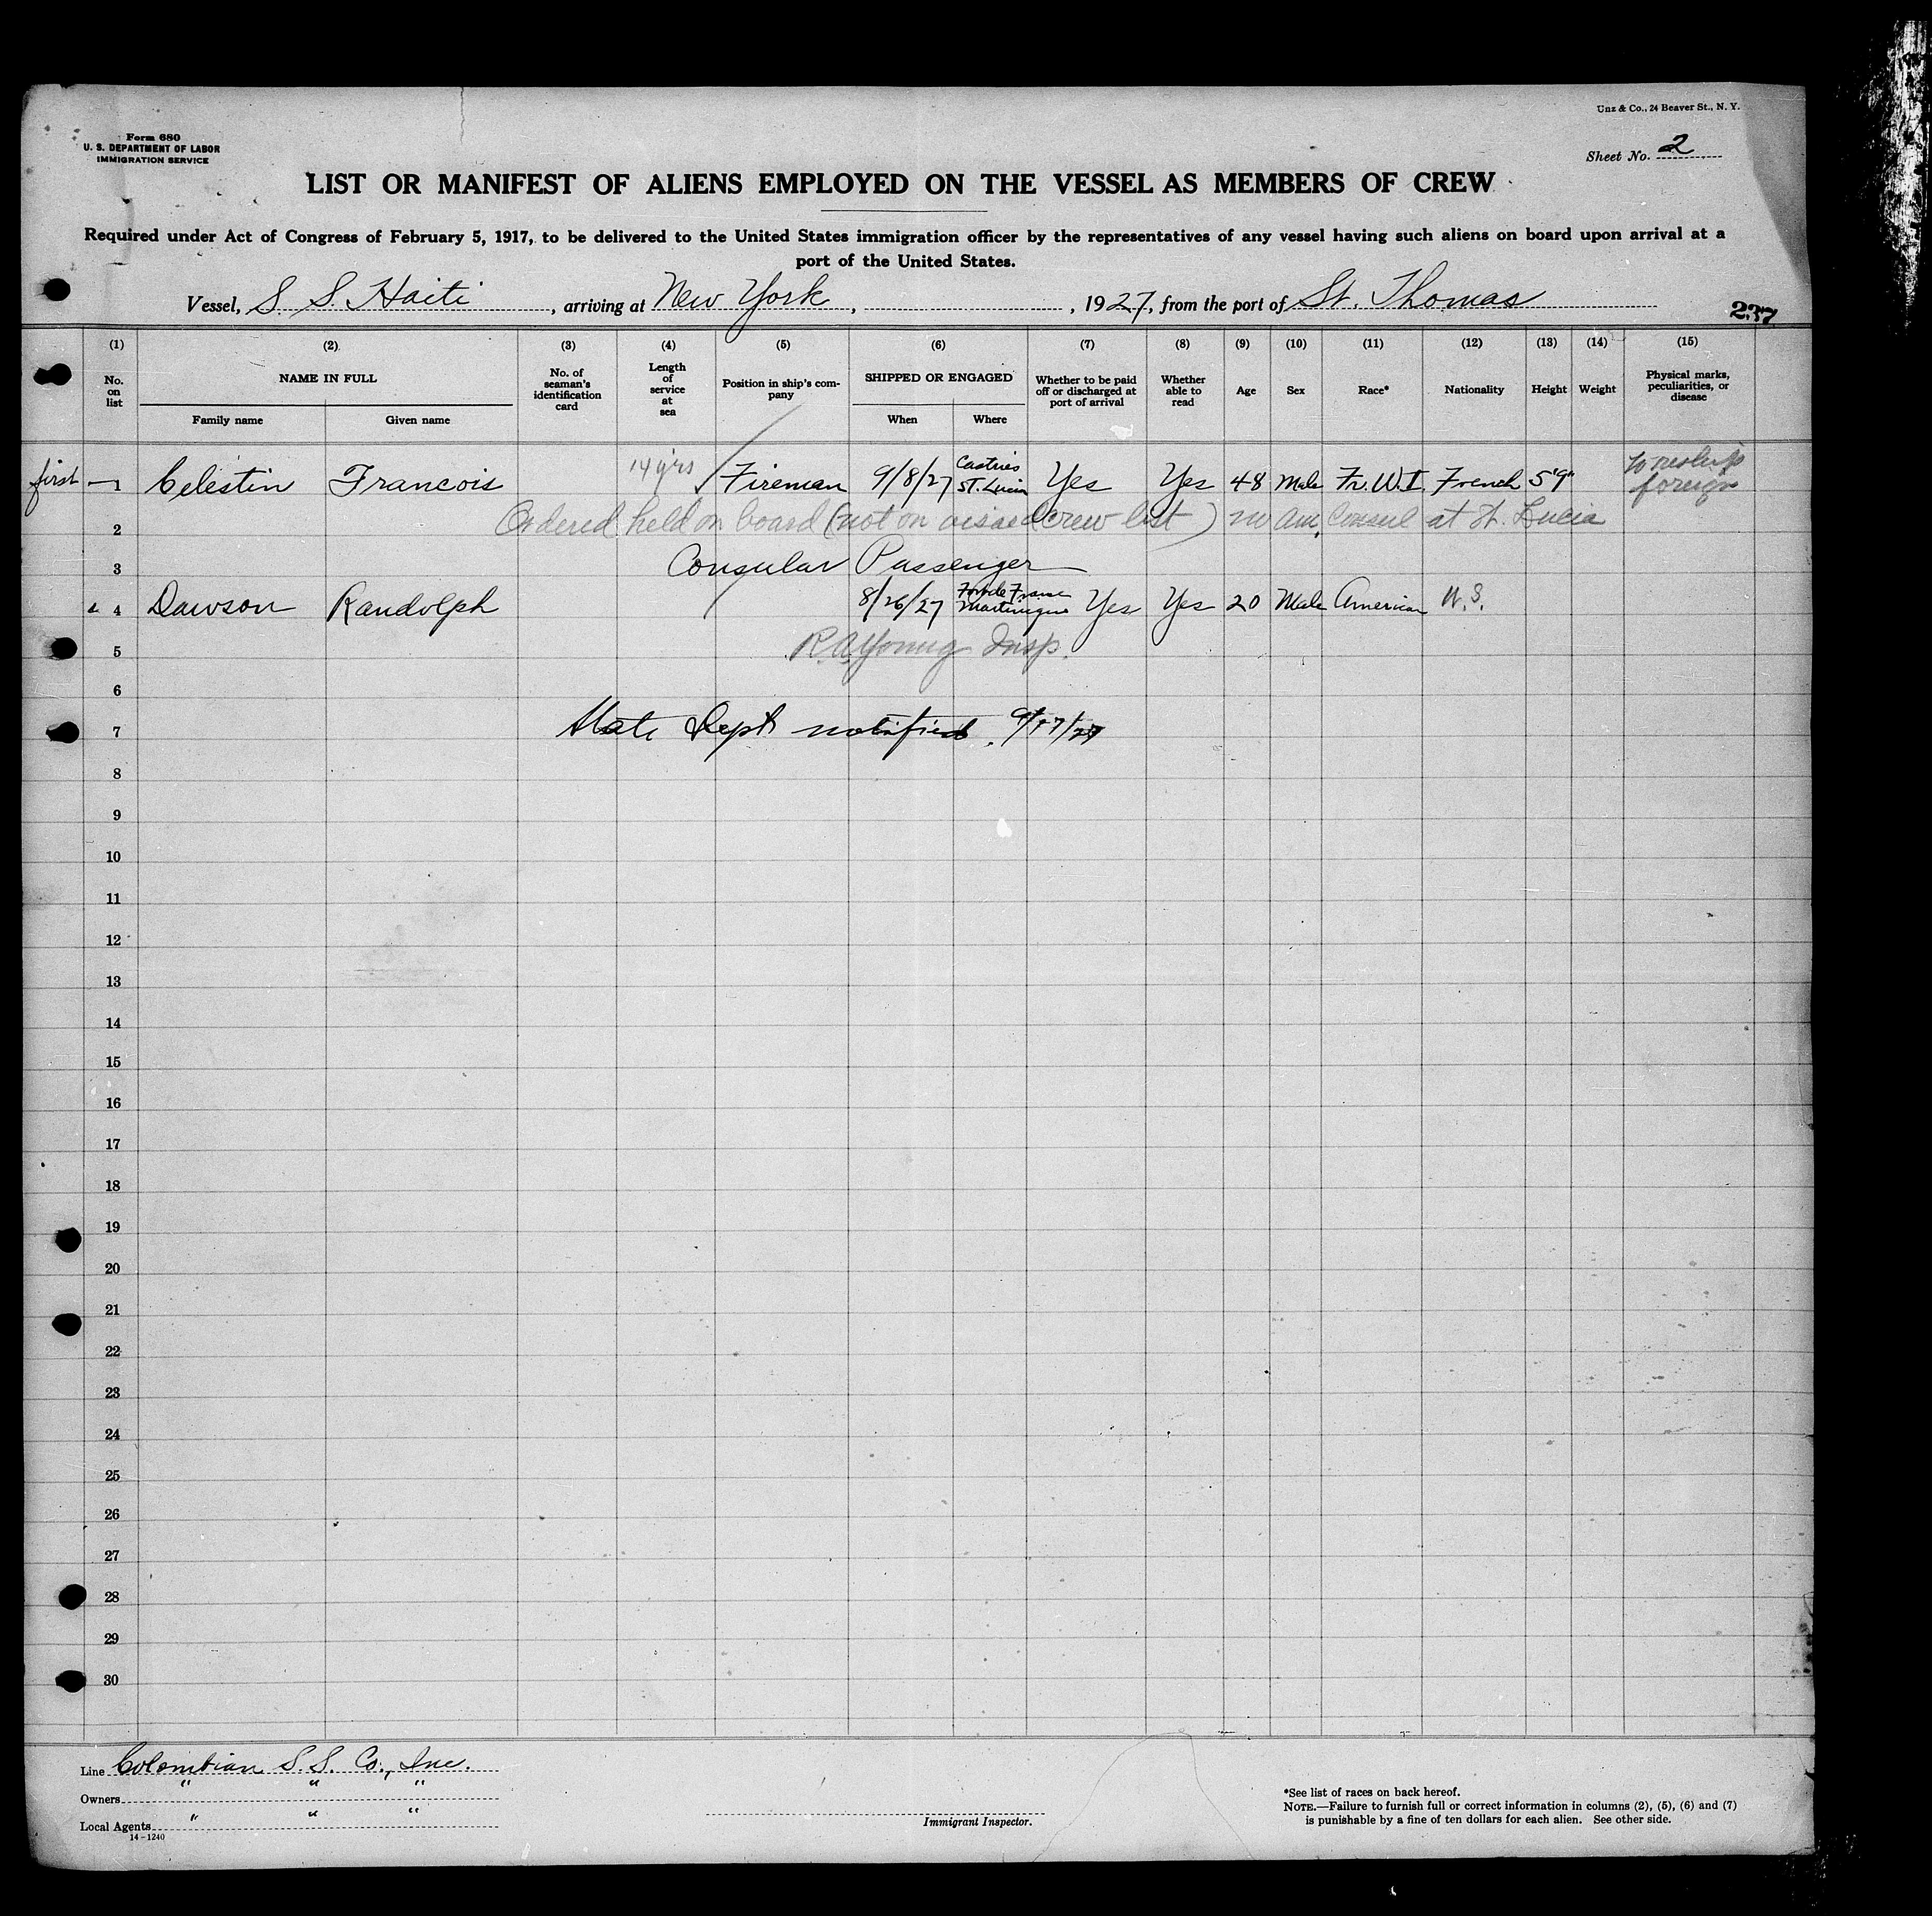 Unz & Co., 24 Beaver St., N. Y.
Form 680
U. S. DEPARTMENT OF LABOR
IMMIGRATION SERVICE
Sheet No. 2
LIST OR MANIFEST OF ALIENS EMPLOYED ON THE VESSEL AS MEMBERS OF CREW
Required under Act of Congress of February 5, 1917, to be delivered to the United States immigration officer by the representatives of any vessel having such aliens on board upon arrival at a
port of the United States.
Vessel, S. S. Haiti, arriving at New York, , 1927, from the port of St. Thomas
237
(1) (2) (3) (4) (5) (6) (7) (8) (9) (10) (11) (12) (13) (14) (15)
No. on list
NAME IN FULL
Family name Given name
No. of seaman's identification card
Length of service at sea
Position in ship's company
SHIPPED OR ENGAGED
When Where
Whether to be paid off or discharged at port of arrival
Whether able to read
Age
Sex
Race*
Nationality
Height
Weight
Physical marks, peculiarities, or disease
first — 1 Celestin Francois 14 yrs Fireman 9/8/27 Castries St. Lucia Yes Yes 48 Male Fr. W. I. French 5'9" to reship foreign
2 Ordered held on board (not on visaed crew list) no Am. Consul at St. Lucia
3 Consular Passenger
4 Dawson Randolph 8/26/27 Fort de France Martinique Yes Yes 20 Male American U.S.
5 R.A. Young Insp.
6
7 State Dept notified. 9/17/27
8
9
10
11
12
13
14
15
16
17
18
19
20
21
22
23
24
25
26
27
28
29
30
Line Colombian S. S. Co., Inc.
Owners " " "
Local Agents " " "
14-1240
Immigrant Inspector.
*See list of races on back hereof.
NOTE.—Failure to furnish full or correct information in columns (2), (5), (6) and (7)
is punishable by a fine of ten dollars for each alien. See other side.